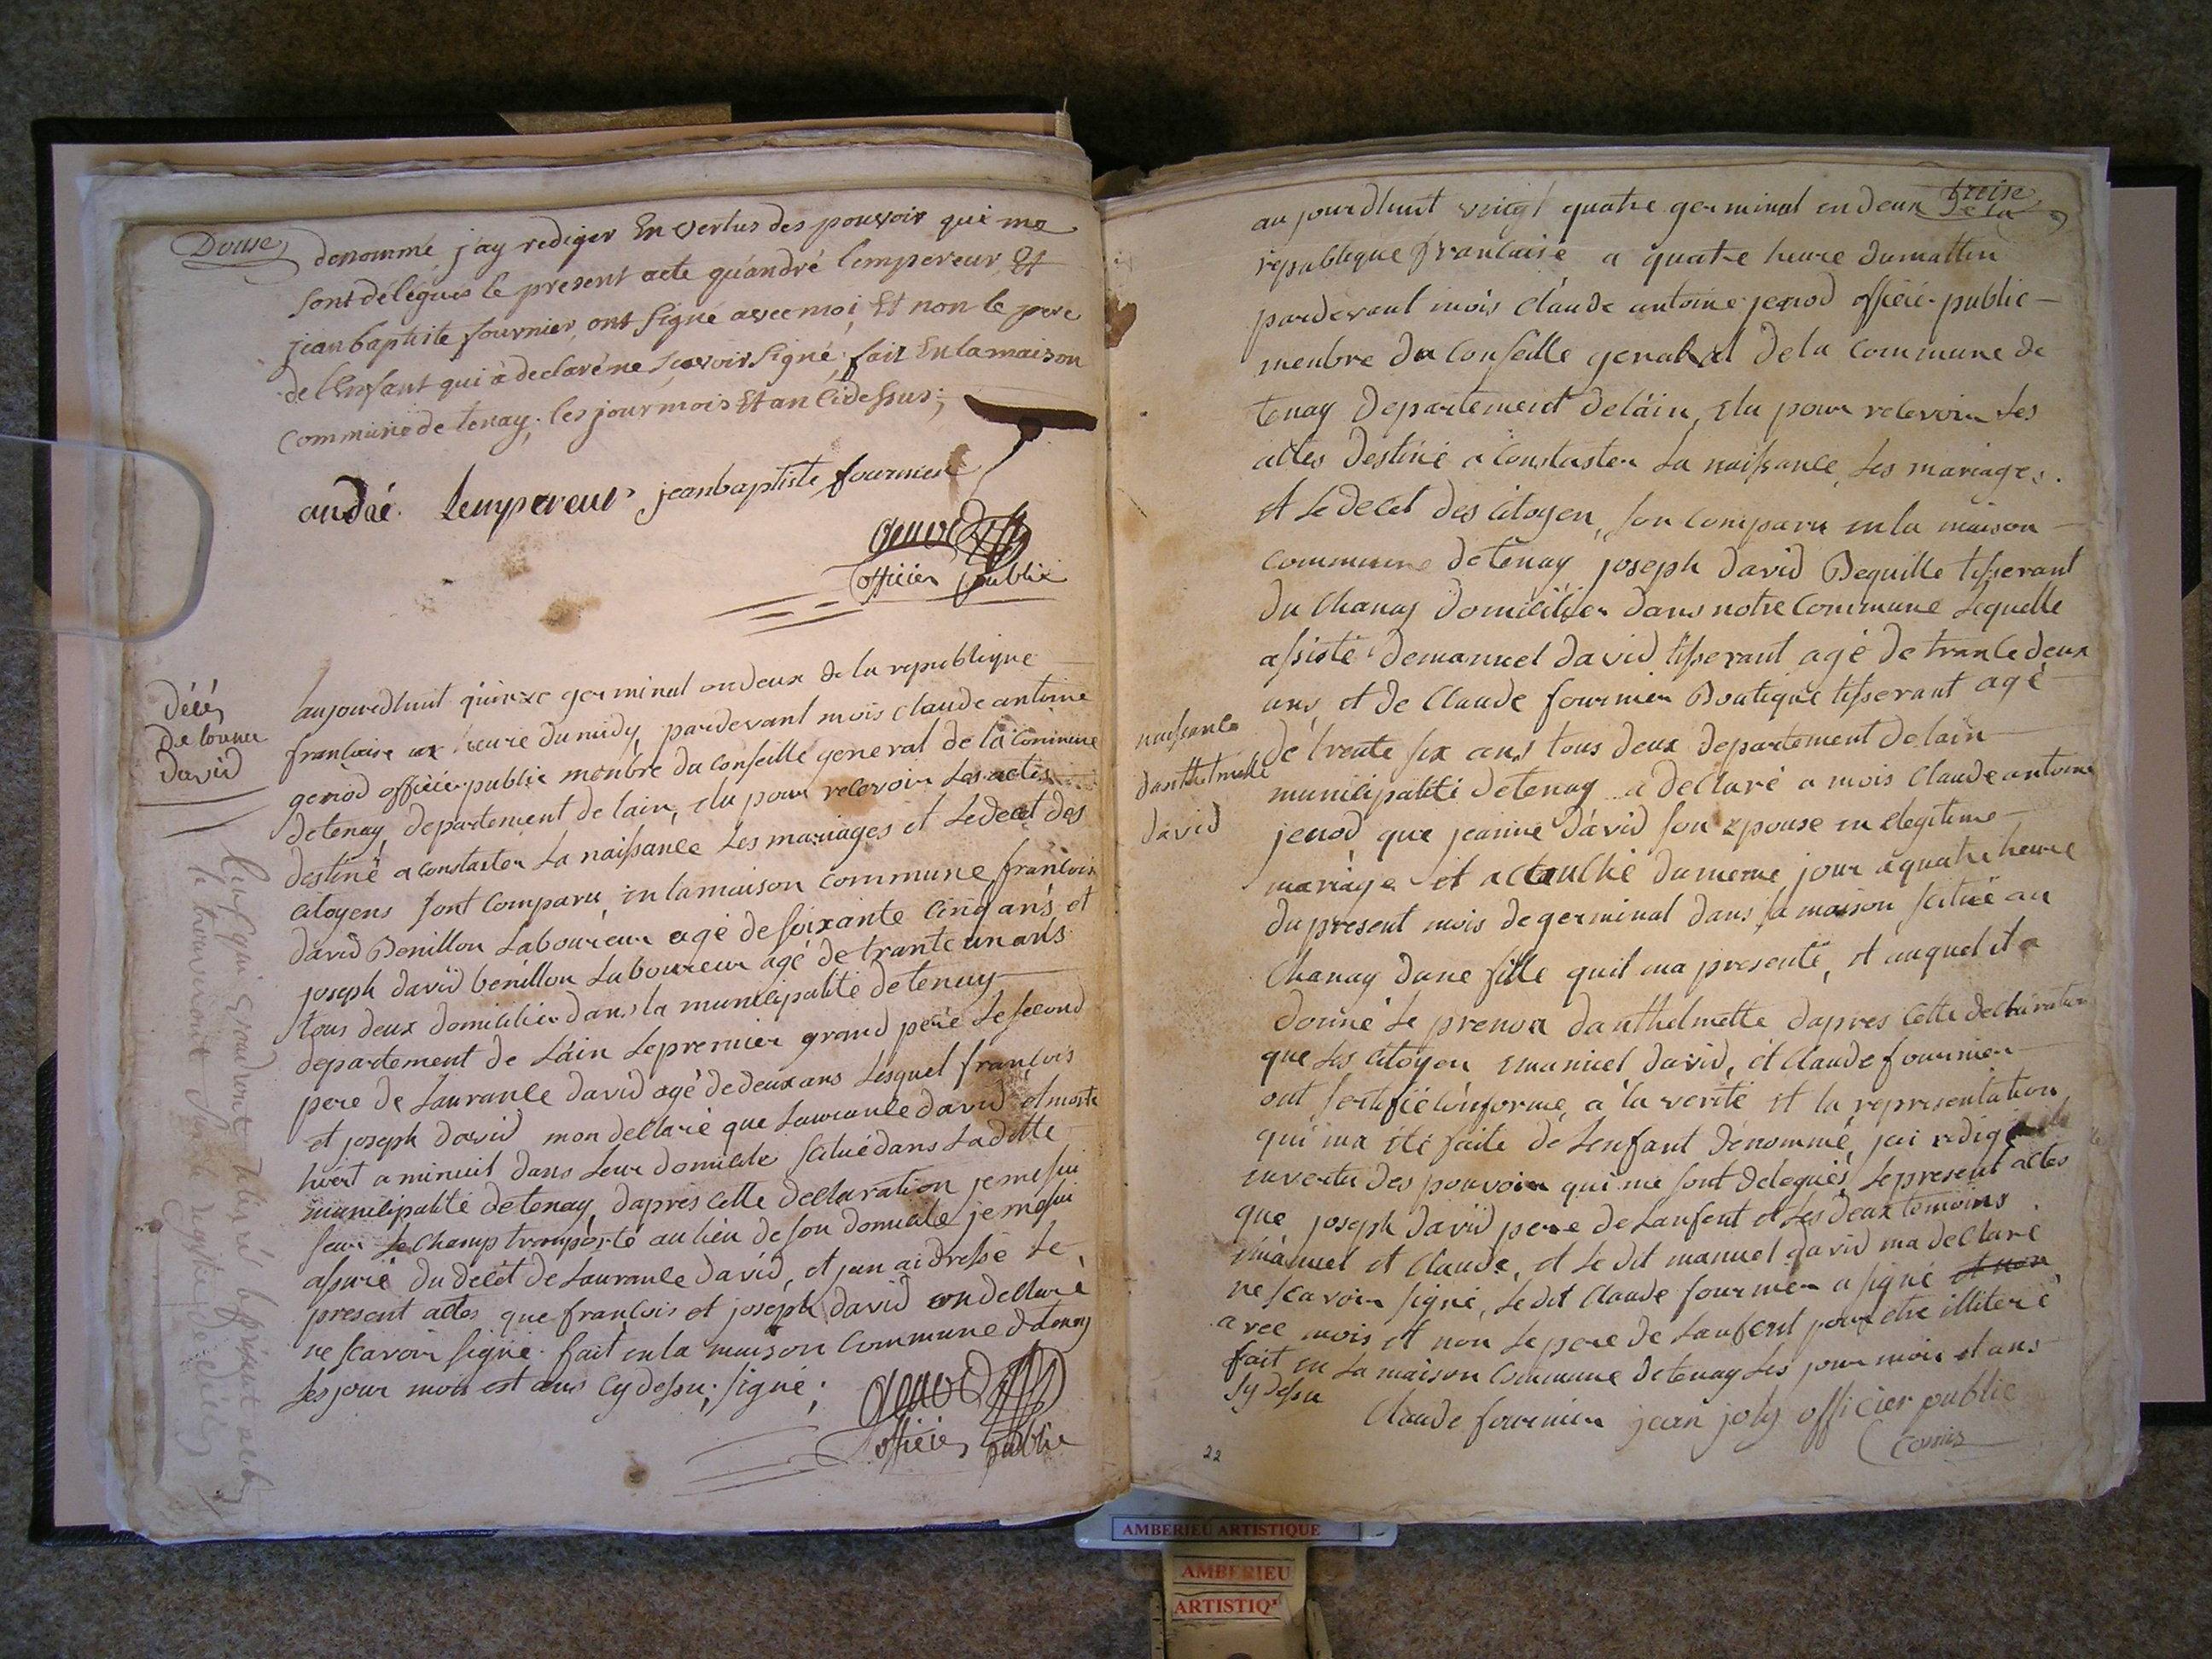 Douse
denommé j'ay rediger En vertus des pouvoir qui me
sont délégués le present acte qu'andré l'empereur, Et
jean baptiste fournier, ont signé avec moi, Et non le pere
de l'Enfant qui à declaré ne sçavoir signé, fait En la maison
commune de tenay, les jour mois Et an ci dessus;
andré Lempereur jean baptiste fournier
officier public
décés
De
David
aujourdhuit quinze germinal en deux de la republique
francaise heure du midy pardevant mois claude antoine
genod officié public menbre du conseille general de la commune
de tenay, departement de lain, elu pour relevoir Les actes
destiné a constaster La naissance Les mariages et Le decet des
citoyens sont comparu, en la maison commune, francois
david Benillon Laboureur agé de soixante cinq ans, et
joseph david benillon Laboureur agé de trante un ans
tous deux domicilier dans la municipalité de tenay
departement de Láin Le premier grand pere Le second
pere de Laurance david agé de deux ans Lesquel francois
et joseph david mon declaré que Laurance david et morte
hiert a minuit dans Leur domicile scitué dans La ditte
municipalité de tenay, dapres cette declaration je me sui
seur Le champ transporté au lieu de son domicile je me sui
assuré du decét de Laurance david, et jen ai dressé Le
present actes que francois et joseph david on declaré
ne scavoir signé fait en la maison commune de tenay
Les jour mois et ans cy dessu; signé;
officier public
treise
au jourdhuit vingt quatre germinal en deux de la
republique francaise a quatre heure du mattin
pardevant mois Claude antoine jenod officié public
menbre du Conseille de la Commune de
tenay departement de láin, elu pour relevoir Les
actes destiné a Constaster La naissance, Les mariages.
et Le decet des Citoyen, son comparu en la maison
commune de tenay joseph david Bequille tisserant
du Chanay domicilier dans notre Commune Lequelle
assisté demanuel david tisserant agé de trante deux
ans, et de Claude fournier Boutique tisserant agé
de trente six ans tous deux departement de lain
naissance
danthelmette
david
municipalité de tenay a declaré a mois Claude antoine
jenod que jeanne david son epouse en legitime
mariage et accouché du meme jour a quatre heure
du present mois de germinal dans sa maison scitué au
Chanay dune fille quil ma presenté, et auquel il a
donné Le prenon danthelmette dapres cette declaration
que Les Citoyen emanuel david, et Claude fournier
ont sertifié conforme, a la verité et la representation
qui ma été faite de Lenfant denommé, jai redigé
en vertu des pouvoir qui me sont delegués, Le present actes
que joseph david pere de Lanfent et Les deux temoins
emanuel et Claude, et Le dit manuel david ma declaré
ne scavoir signé, Le dit Claude fournier a signé et non
avec mois et non Le pere de Lanfent pour etre illiteré
fait en La maison Commune de tenay Les jour mois et ans
sy dessu
Claude fournier jean joly officier public
22
AMBERIEU ARTISTIQUE
AMBERIEU
ARTISTIQ